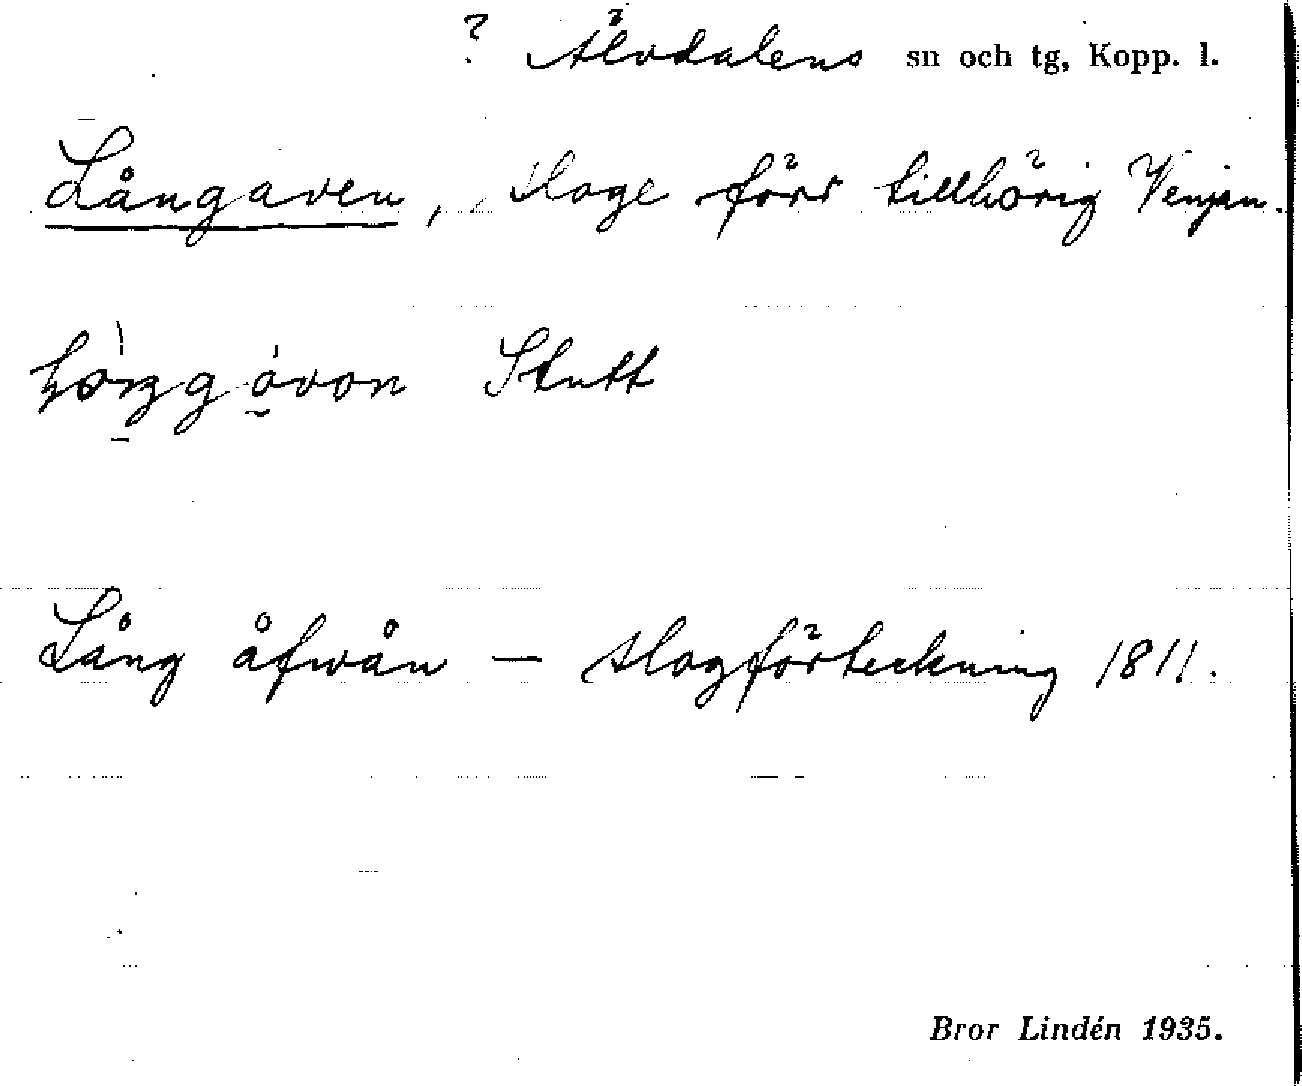 ? Älvdalens sn och tg, Kopp. l.
Långaven, sloge förr tillhörig Venjan.
Stutt
Lång åfwån — slogförteckning 1811.
Bror Lindén 1935.